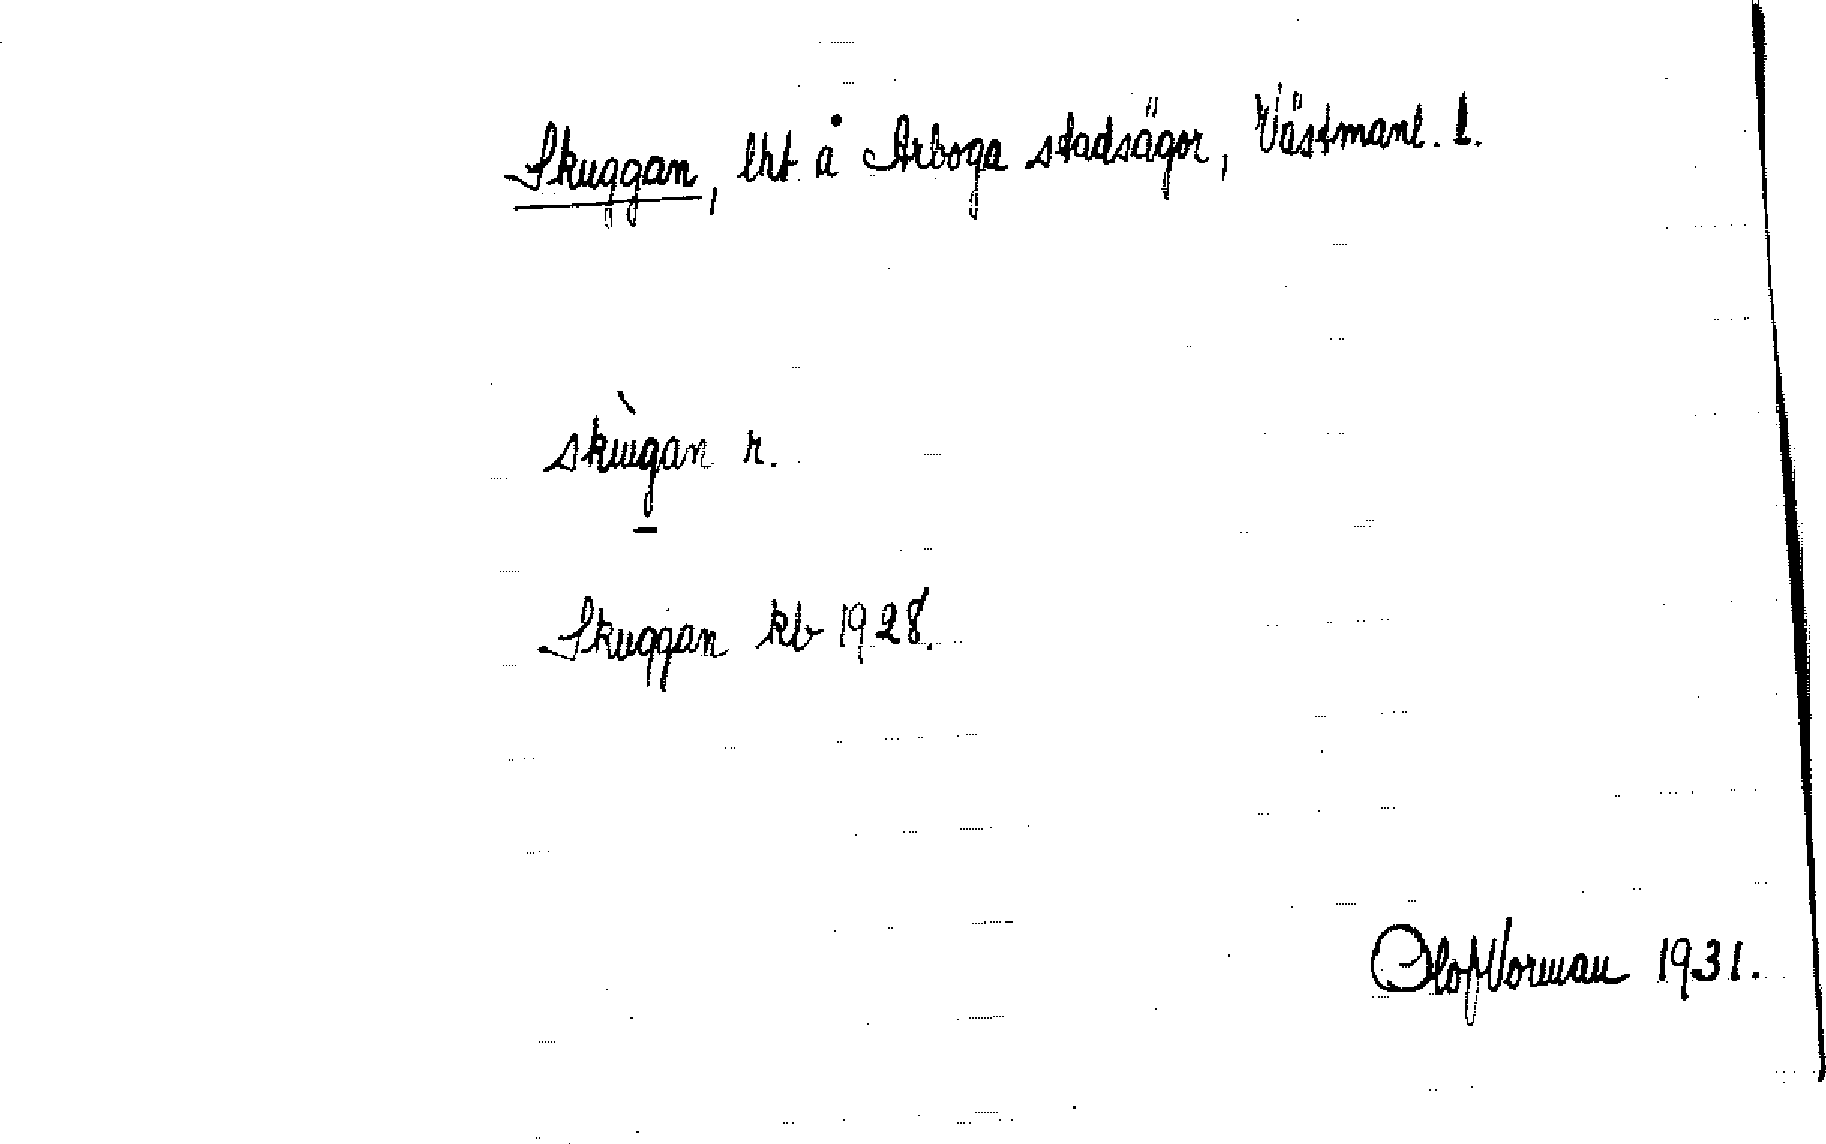 Skuggan, lht å Arboga stadsägor, Västmanl. l.
skùgan r.
Skuggan kb 1928.
Olof Vorman 1931.